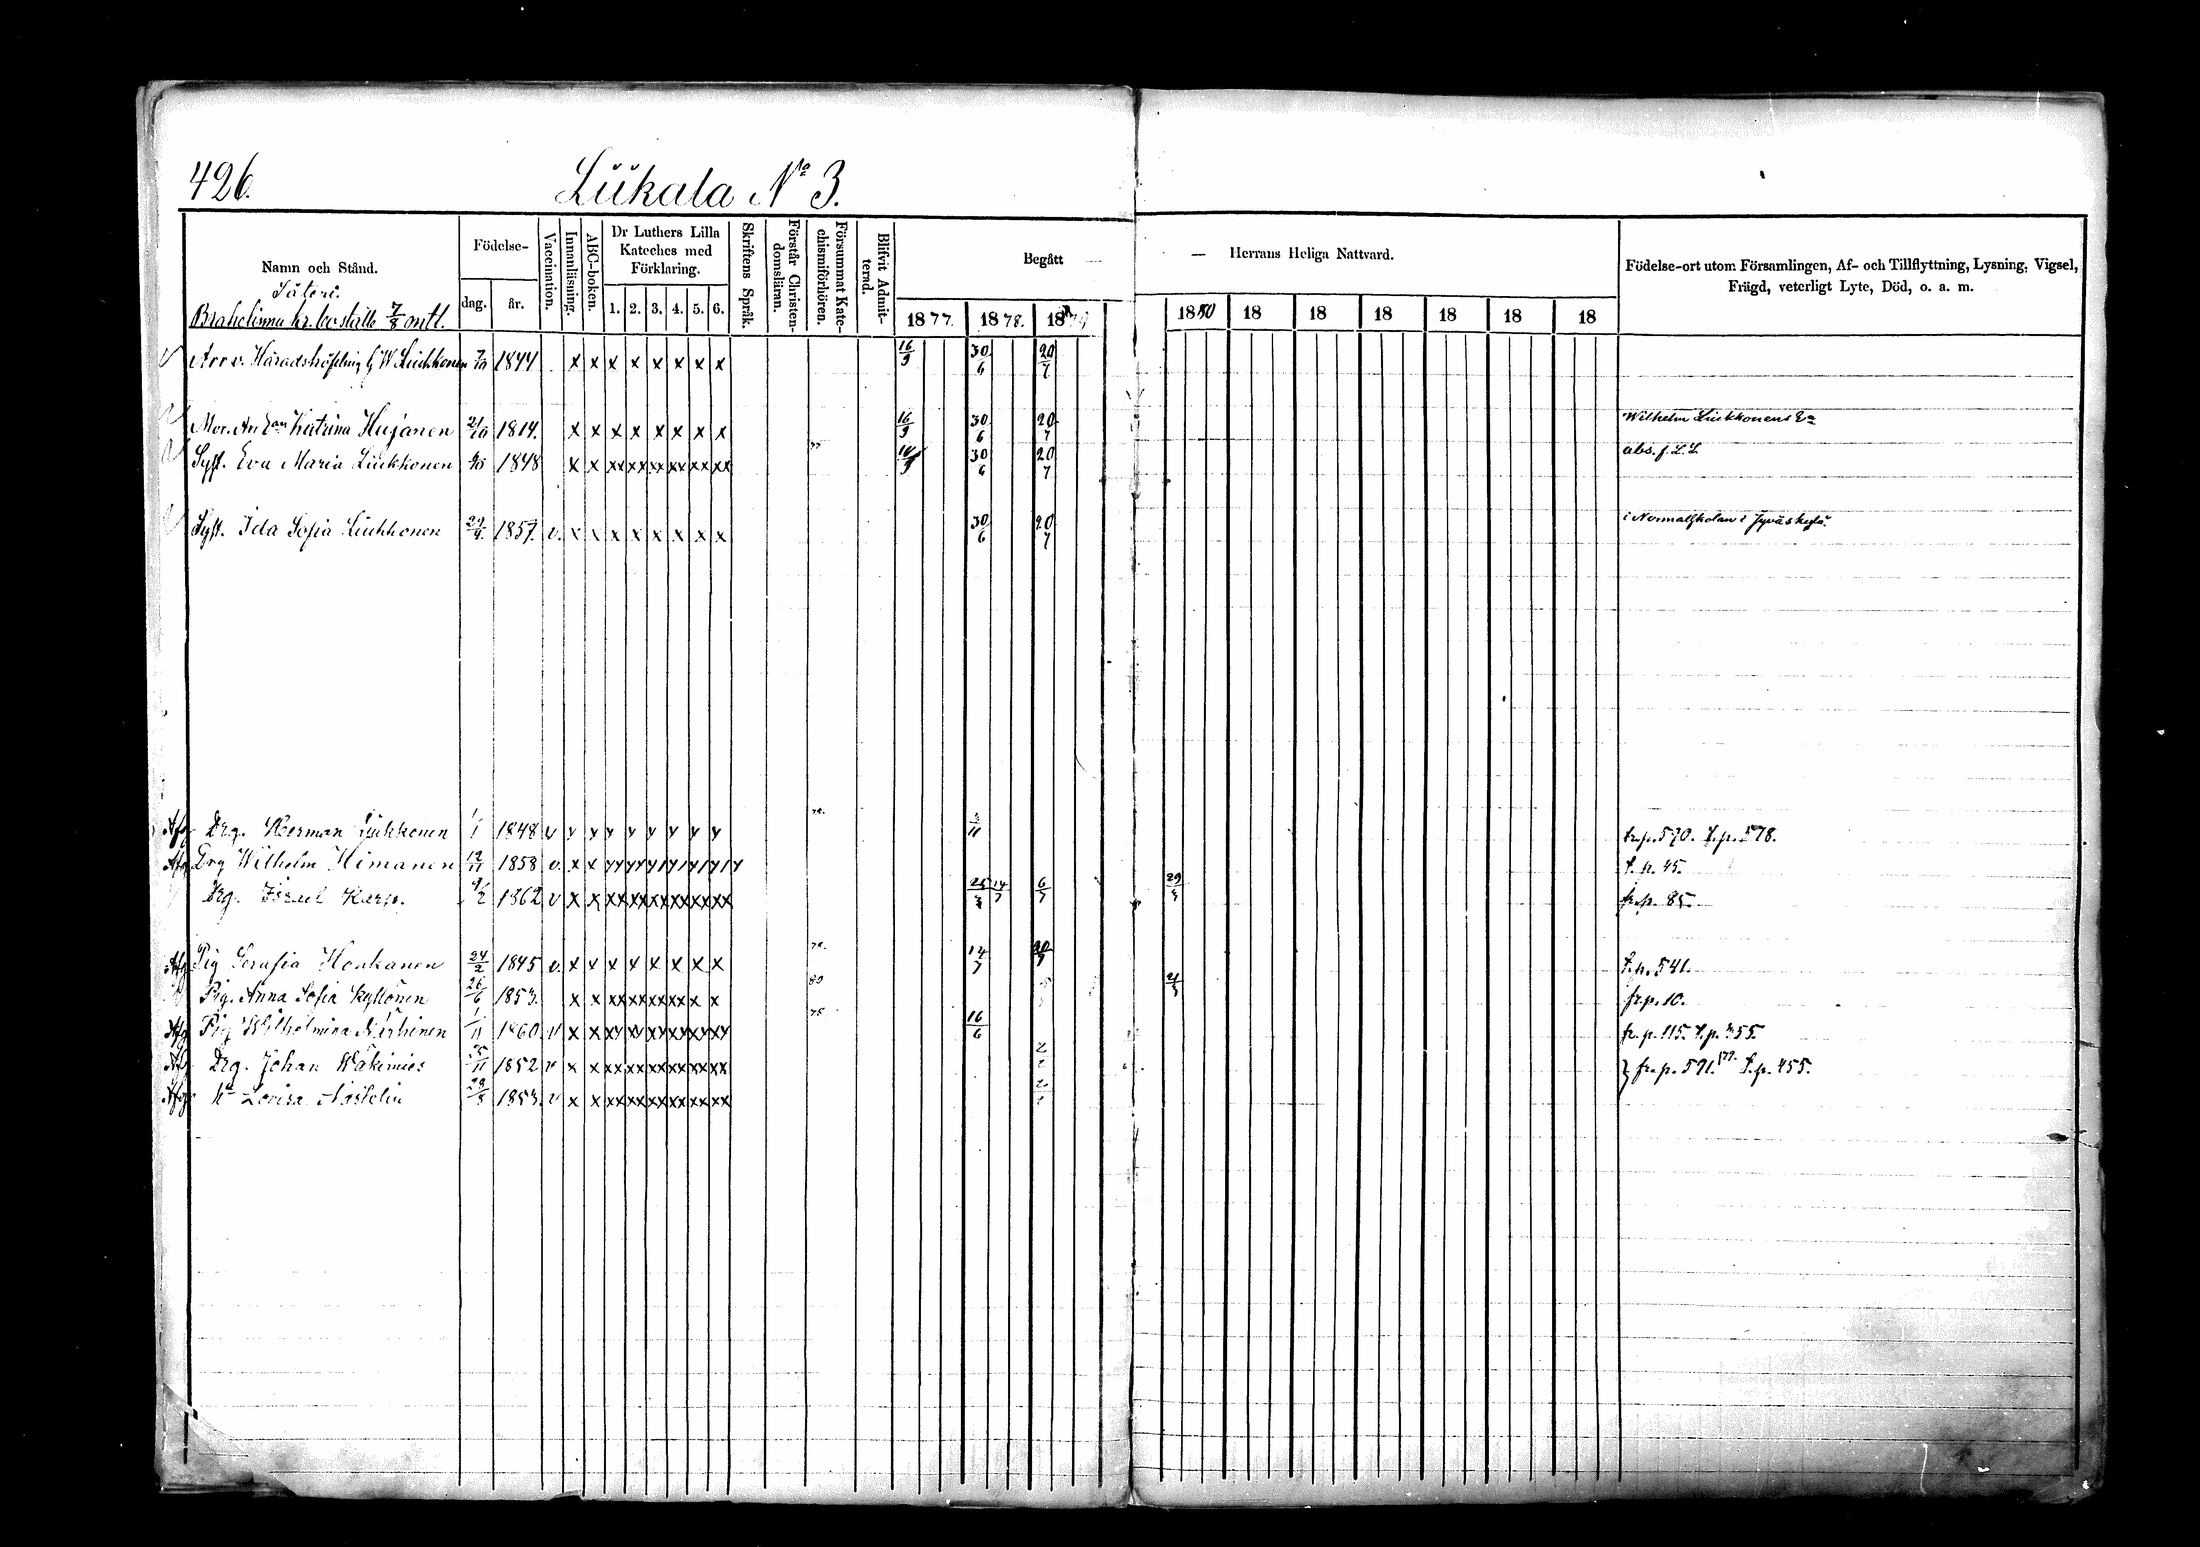 426.
Liikala No 3.
Namn och Stånd.
Säteri.
Brahelinna kr. boställe 7/8 mtl.
Födelse-
dag. år.
Vaccination.
Innanläsning.
ABC-boken.
Dr Luthers Lilla
Kateches med
Förklaring.
1. 2. 3. 4. 5. 6.
Skriftens Språk.
Förstår Christen-
domsläran.
Försummat Kate-
chismiförhören.
Blifvit Admit-
terad.
Begått — — Herrans Heliga Nattvard.
1877. 1878. 1879 1880 18 18 18 18 18 18
Födelse-ort utom Församlingen, Af- och Tillflyttning, Lysning, Vigsel,
Frägd, veterligt Lyte, Död, o. a. m.
Arr v. Häradshöfding G W Liukkonen 7/10 1844 x x x x x x x x 16/9 30/6 20/7
Mor. An Ean Katrina Hujanen 21/10 1814. x x x x x x x x 16/9 30/6 20/7 Wilhelm Liukkonens Ea
Syst. Eva Maria Liukkonen 1848 x x xx xx xx xx xx xx 77 16/9 30/6 20/7 abs. f. L. L.
Syst. Ida Sofia Liukkonen 29/4 1857. v. x x x x x x x x 30/6 20/7 i Normalskolan i Jyväskylä.
Afg Drg. Herman Liukkonen 1/1 1848 v 78. fr. p. 570. t. p. 578.
Afg Drg Wilhelm Himanen 12/11 1858 v. t. p. 45.
Drg. Israel Karp. 9/2 1862 v x x xx xx xx xx xx xx 14/7 6/7 fr. p. 85.
Afg Pig Serafia Honkanen 24/2 1845 v. x x x x x x x x 78. 14/7 t. p. 541.
Pig. Anna Sofia Kyllönen 26/6 1853. x x xx xx xx xx x x 80 fr. p. 10.
Afg Pig Wilhelmina 1/11 1860. v 78 16/6 fr. p. 115. t. p. 355.
Afg Drg. Johan Wäkimies 25/11 1852 v x x xx xx xx xx xx xx } fr. p. 591. t. p. 455.
Afg Lovisa 1853. v x x xx xx xx xx xx xx